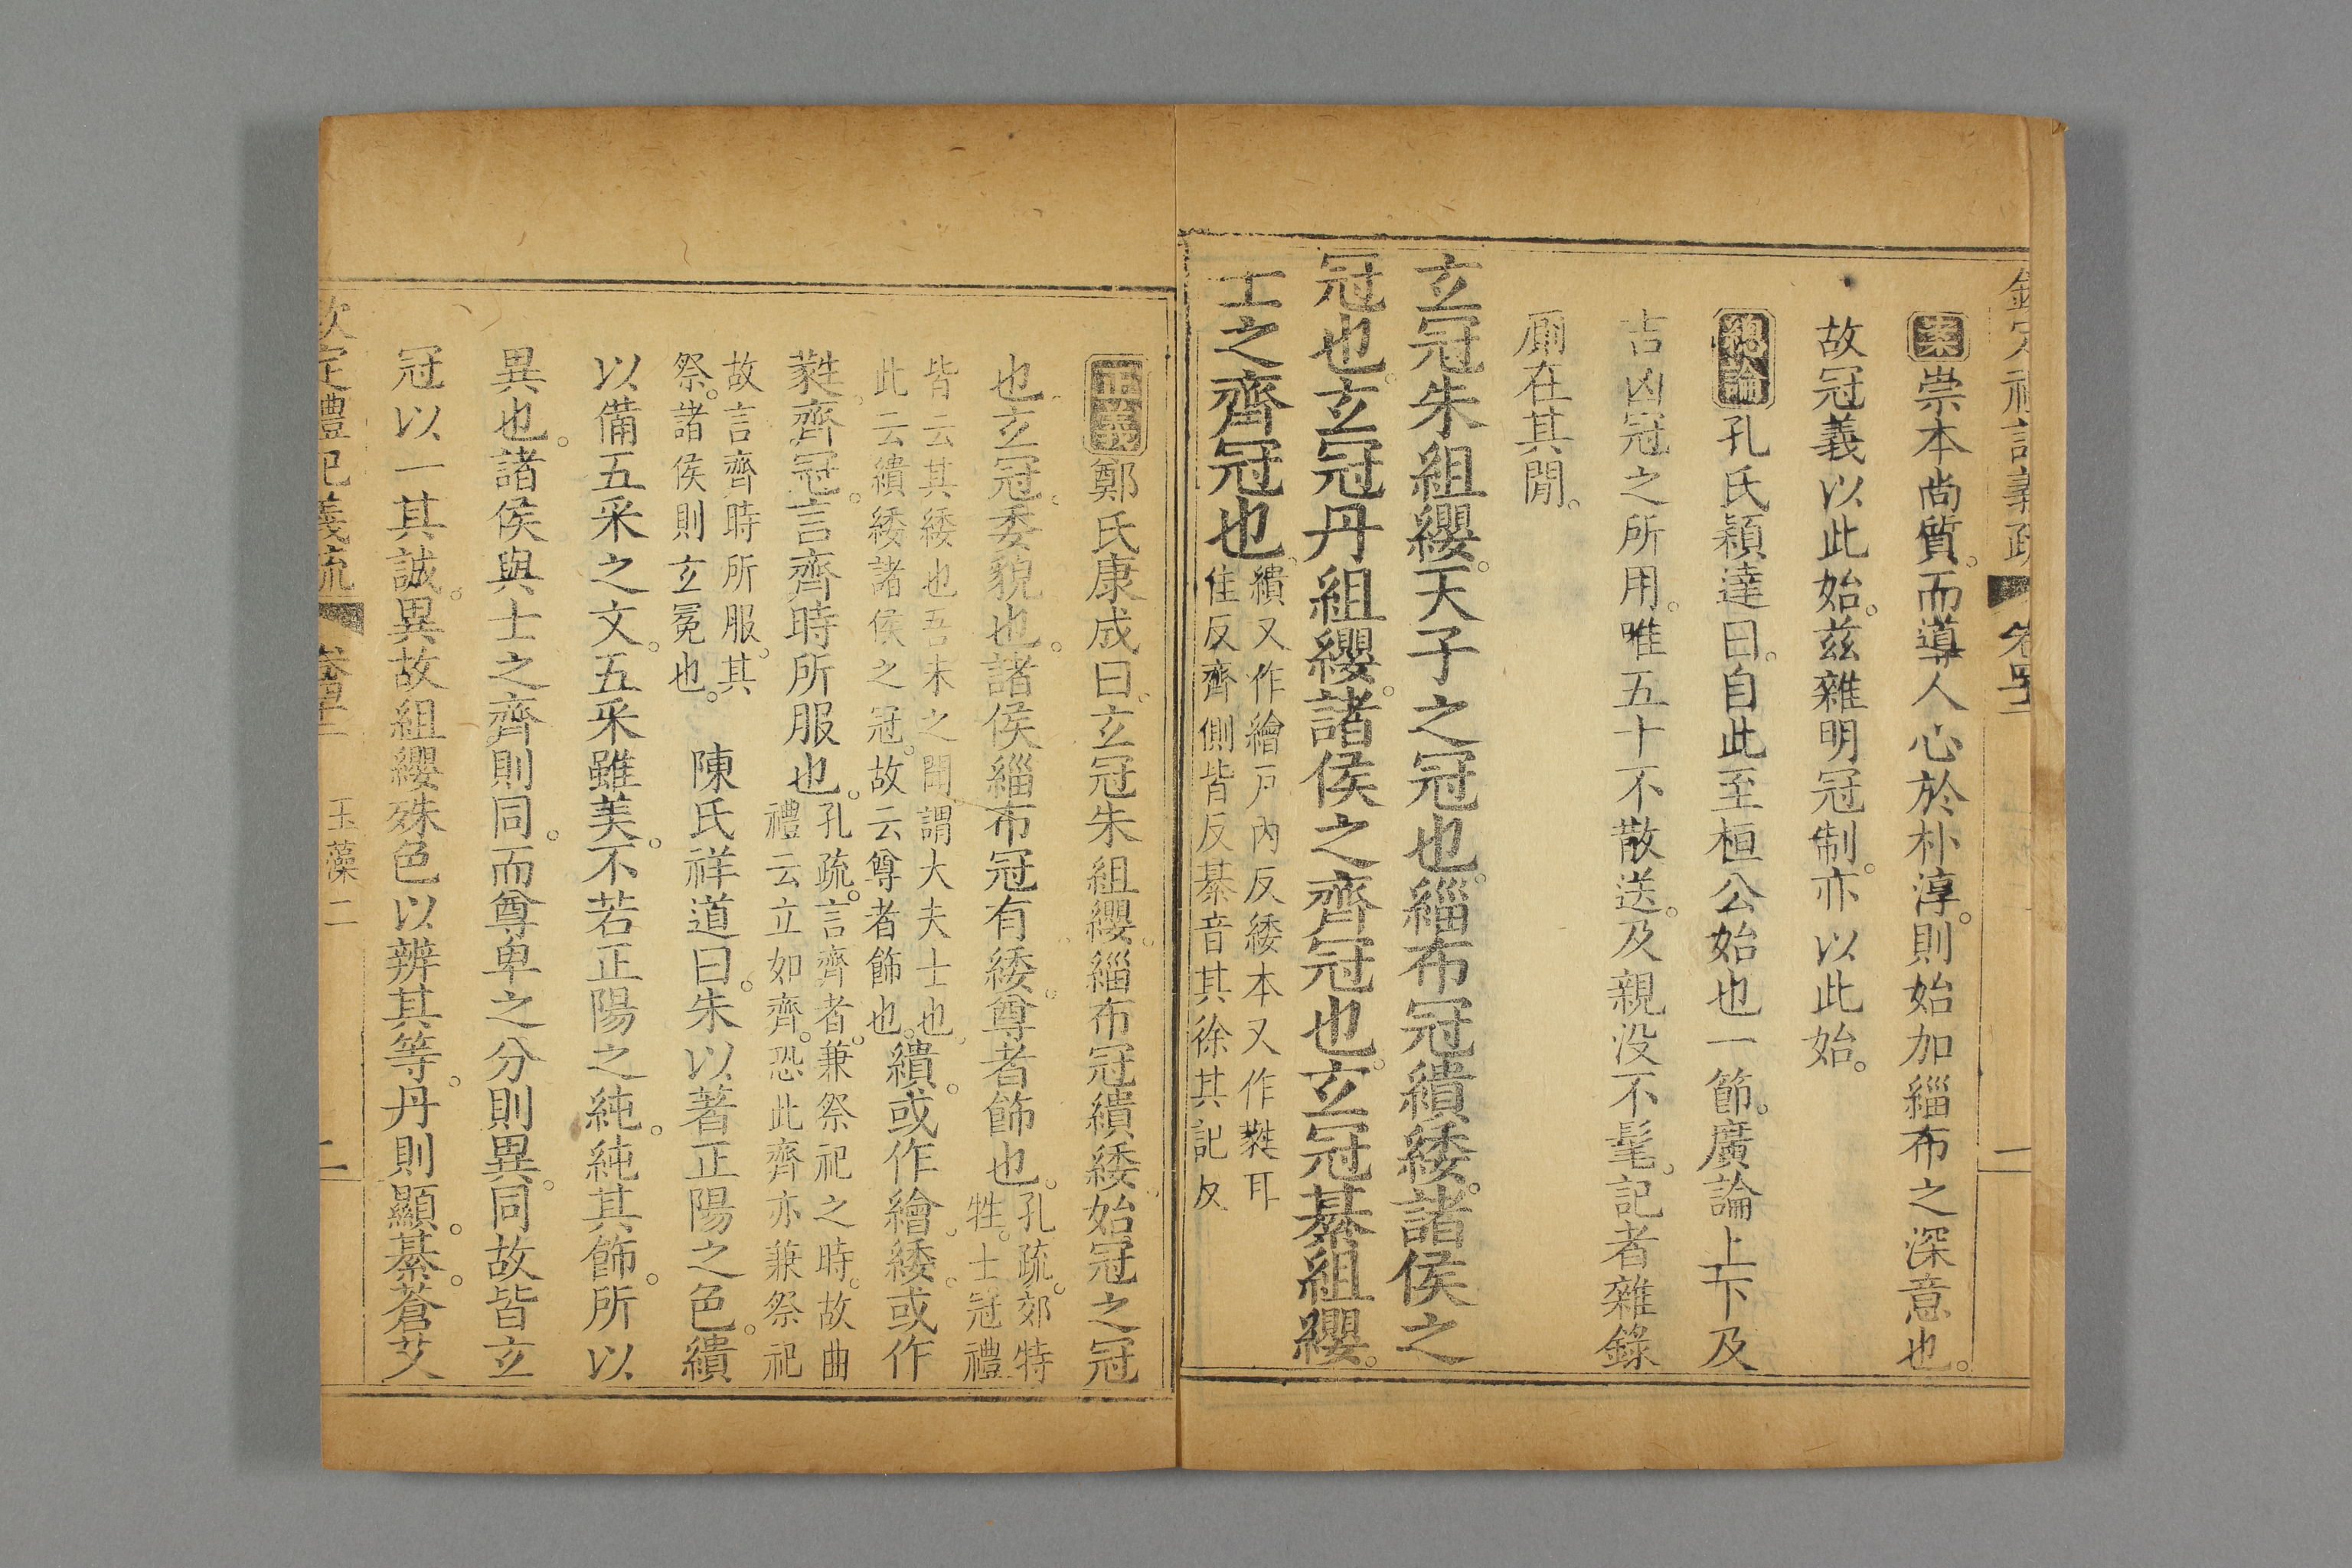 欽定禮記義疏 卷四十一 二
案崇本尚質。而導人心於朴淳。則始加緇布之深意也。
故冠義以此始。茲雜明冠制。亦以此始。
總論孔氏穎達曰。自此至桓公始也一節。廣論上下及
吉凶冠之所用。唯五十不散送。及親没不髦。記者雜錄
廁在其閒。
玄冠朱組纓。天子之冠也。緇布冠繢緌。諸侯之
冠也。玄冠丹組纓。諸侯之齊冠也。玄冠綦組纓。
士之齊冠也。繢又作繪戸內反緌本又作㽔耳
隹反齊側皆反綦音其徐其記反
正義鄭氏康成曰。玄冠朱組纓。緇布冠繢緌。始冠之冠
也。玄冠。委貌也。諸侯緇布冠有緌。尊者飾也。孔疏。郊特
牲。士冠禮
皆云其緌也吾未之聞謂大夫士也。
此云繢緌諸侯之冠。故云尊者飾也。繢。或作繪。緌。或作
㽔。齊冠。言齊時所服也。孔疏。言齊者。兼祭祀之時。故曲
禮云立如齊。恐此齊亦兼祭祀
故言齊時所服。其
祭。諸侯則玄冕也。 陳氏祥道曰。朱以著正陽之色。繢
以備五采之文。五采雖美。不若正陽之純。純其飾。所以
異也。諸侯與士之齊則同。而尊卑之分則異。同故皆玄
冠以一其誠。異故組纓殊色以辨其等。丹則顯。綦。蒼艾
欽定禮記義疏 卷四十一 玉藻二 二